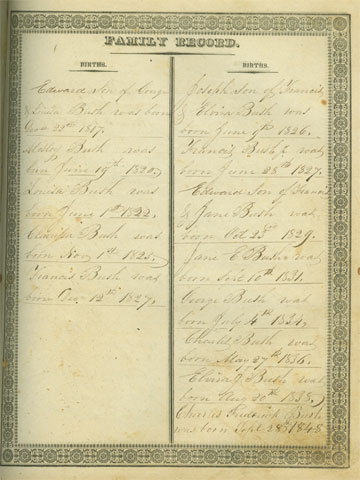 FAMILY RECORD.
BIRTHS.
Edward Son of
& Bush was born
22nd 1817.
Bush was
born June 19th 1820.
Louisa Bush was
born June 1st 1822.
Clarissa Bush was
born Nov 1st 1825.
Francis Bush was
born 12th 1827.
BIRTHS.
Joseph Son of Francis
& Bush was
born June 9th 1826.
Francis Bush Jr was
born June 28th 1827.
Edward Son of Francis
& Jane Bush was
born Oct 23rd 1829.
Jane C Bush was
born 10th 1831.
George Bush was
born July 4th 1834.
Bush was
born May 27th 1836.
Bush was
born Aug 30th 1838.
Charles Frederick Bush
was born Sept 28 1848